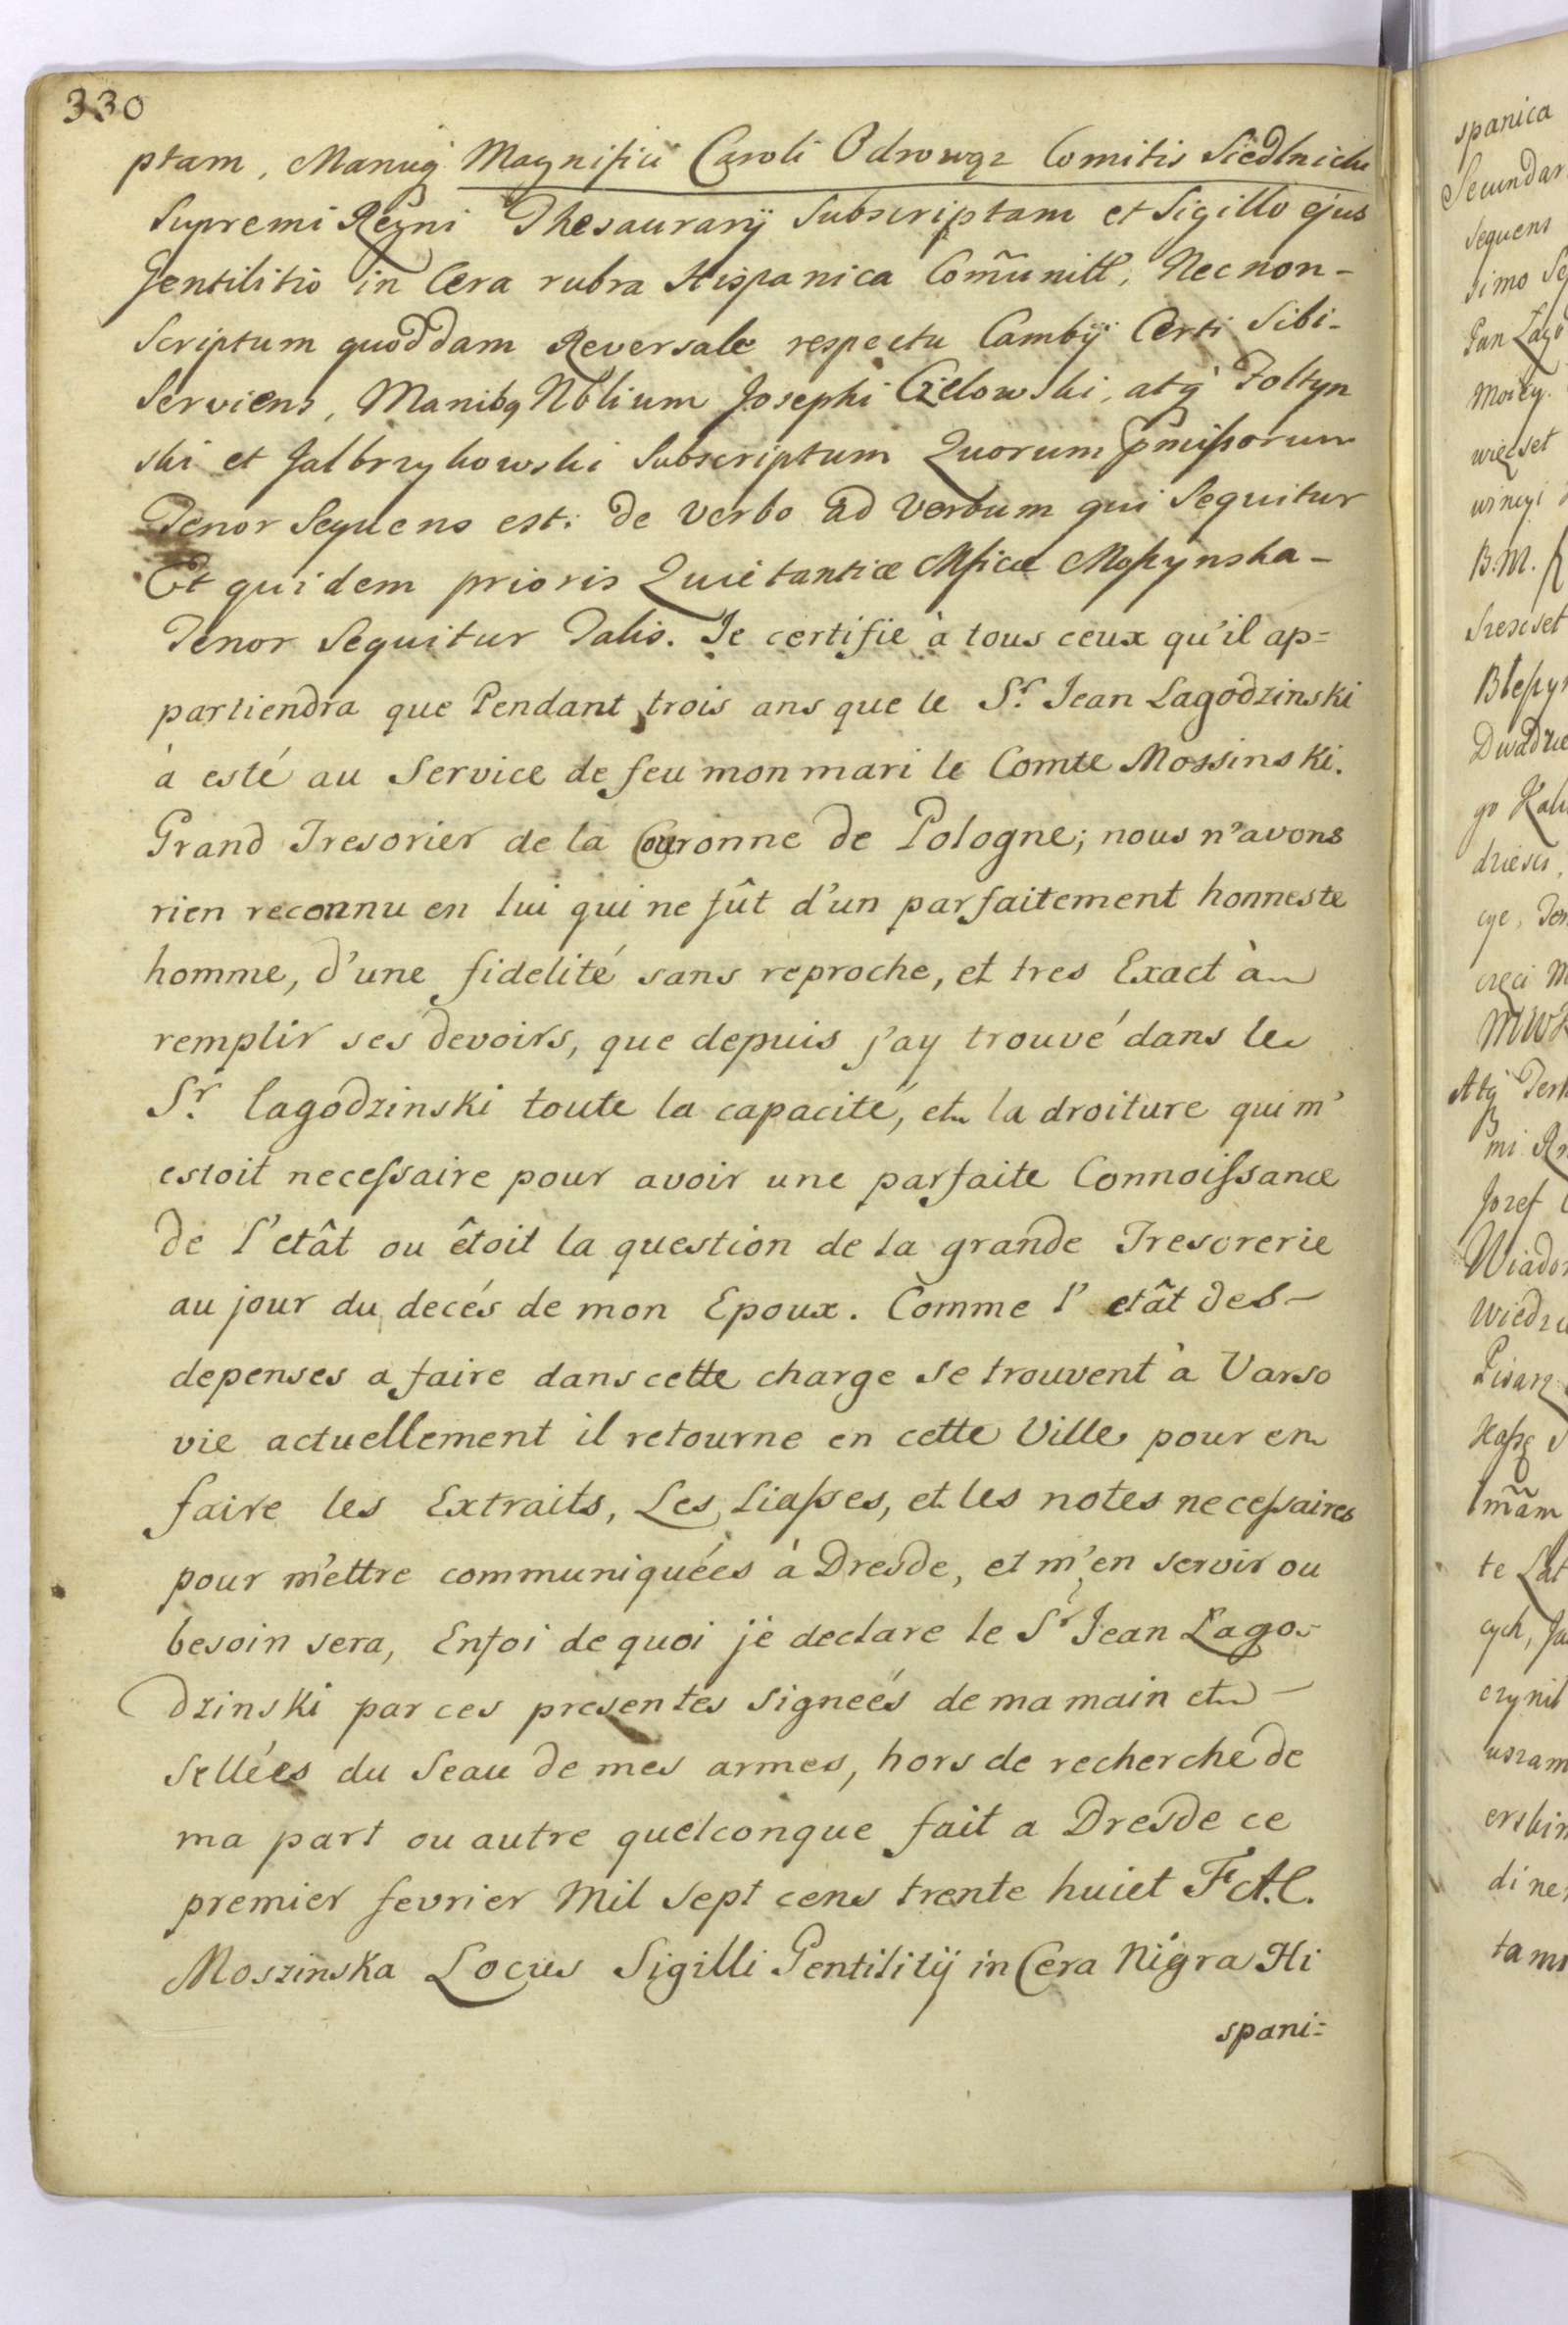 330
ptam, Manuq Magnifici Caroli Odrowąz Comitis Siedlnicki
Supremi Regni Thesaurarÿ Subscriptam et Sigillo ejus
Gentilitio in Cera rubra Hispanica Com̃unitt, Nec non -
Scriptum quoddam Reversale respectu Cambÿ Certi Sibi -
Serviens, Manibq Nblium Josephi Cżelowski, atq Zoltyn
ski et Jalbrzykowski Subscriptum Quorum p̃missorum
Tenor Sequens est: de Verbo ad Verbum qui Sequitur
Et quidem prioris Quietantiæ Mficæ Moszynska -
Tenor Sequitur Talis. Je certifie à tous ceux qu'il ap=
partiendra que Pendant trois ans que le Sr. Jean Lagodzinski
à esté au Service de feu mon mari le Comte Mossinski.
Grand Tresorier de la Couronne de Pologne; nous n'avons
rien reconnu en lui qui ne fût d'un parfaitement honneste
homme, d'une fidelité sans reproche, et tres Exact à
remplir ses devoirs, que depuis j'ay trouvé dans le
Sr. Lagodzinski toute la capacité, et la droiture qui m'
estoit necessaire pour avoir une parfaite Connoissance
de l'etât ou êtoit la question de la grande Tresorerie
au jour du decés de mon Epoux. Comme l' etât des -
depenses a faire dans cette charge se trouvent à Varso
vie actuellement il retourne en cette Ville pour en
faire les Extraits, Les Liasses, et les notes necessaires
pour m'ettre communiquées à Dresde, et m'en servir ou
besoin sera, Enfoi de quoi je declare le Sr Jean Lago-
dzinski par ces presentes signeés de ma main et -
Sellées du Seau de mes armes, hors de recherche de
ma part ou autre quelconque fait a Dresde ce
premier fevrier Mil Sept cens trente huiet F.A.C.
Moszinska Locus Sigilli Gentilitÿ in Cera Nigra Hi
spani=
spanica
Secundar
Sequens
simo
Pan
więcset
B.M.
go
dziesci
Jozef
Wiado
te
cych,
czynil
di